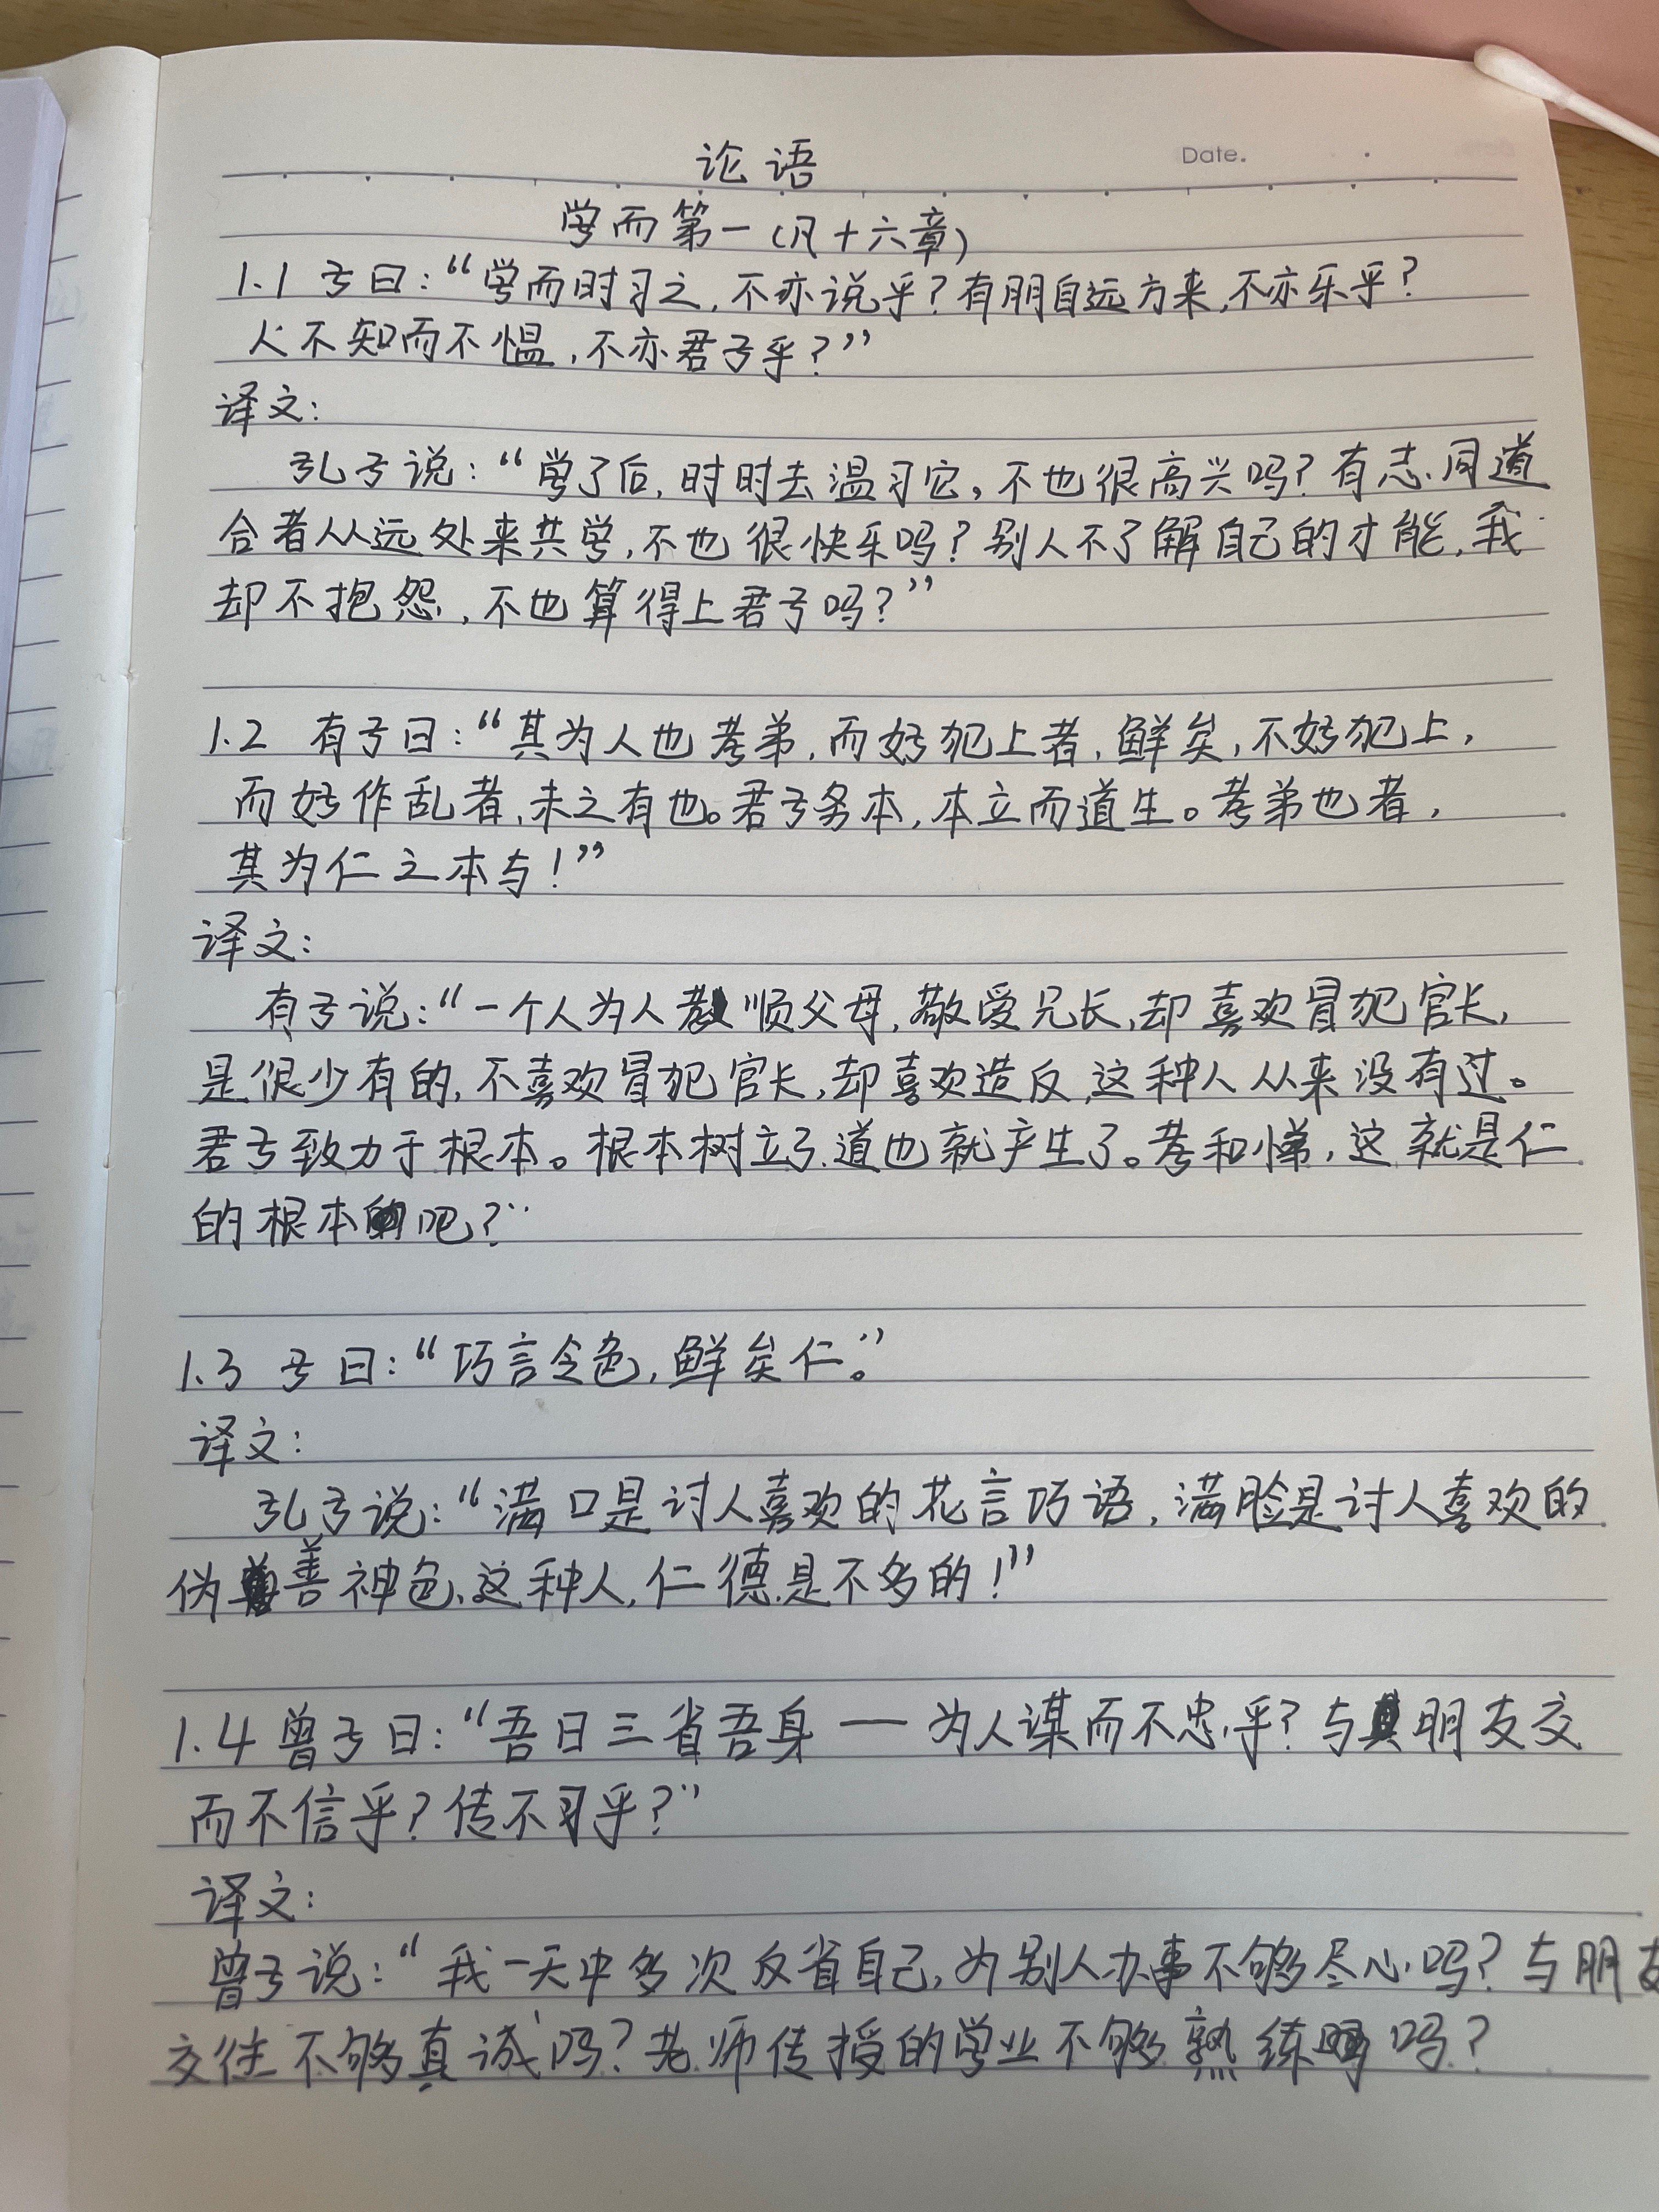 论语
Date.
学而第一(凡十六章)
1.1 子曰:“学而时习之,不亦说乎?有朋自远方来,不亦乐乎?
人不知而不愠,不亦君子乎?”
译文:
孔子说:“学了后,时时去温习它,不也很高兴吗?有志同道
合者从远处来共学,不也很快乐吗?别人不了解自己的才能,我
却不抱怨,不也算得上君子吗?”
1.2 有子曰:“其为人也孝弟,而好犯上者,鲜矣,不好犯上,
而好作乱者,未之有也。君子务本,本立而道生。孝弟也者,
其为仁之本与!”
译文:
有子说:“一个人为人孝顺父母,敬爱兄长,却喜欢冒犯官长,
是很少有的,不喜欢冒犯官长,却喜欢造反,这种人从来没有过。
君子致力于根本。根本树立了,道也就产生了。孝和悌,这就是仁
的根本吧?”
1.3 子曰:“巧言令色,鲜矣仁。”
译文:
孔子说:“满口是讨人喜欢的花言巧语,满脸是讨人喜欢的
伪善神色,这种人,仁德是不多的!”
1.4 曾子曰:“吾日三省吾身——为人谋而不忠乎?与朋友交
而不信乎?传不习乎?”
译文:
曾子说:“我一天中多次反省自己,为别人办事不够尽心吗?与朋友
交往不够真诚吗?老师传授的学业不够熟练吗?